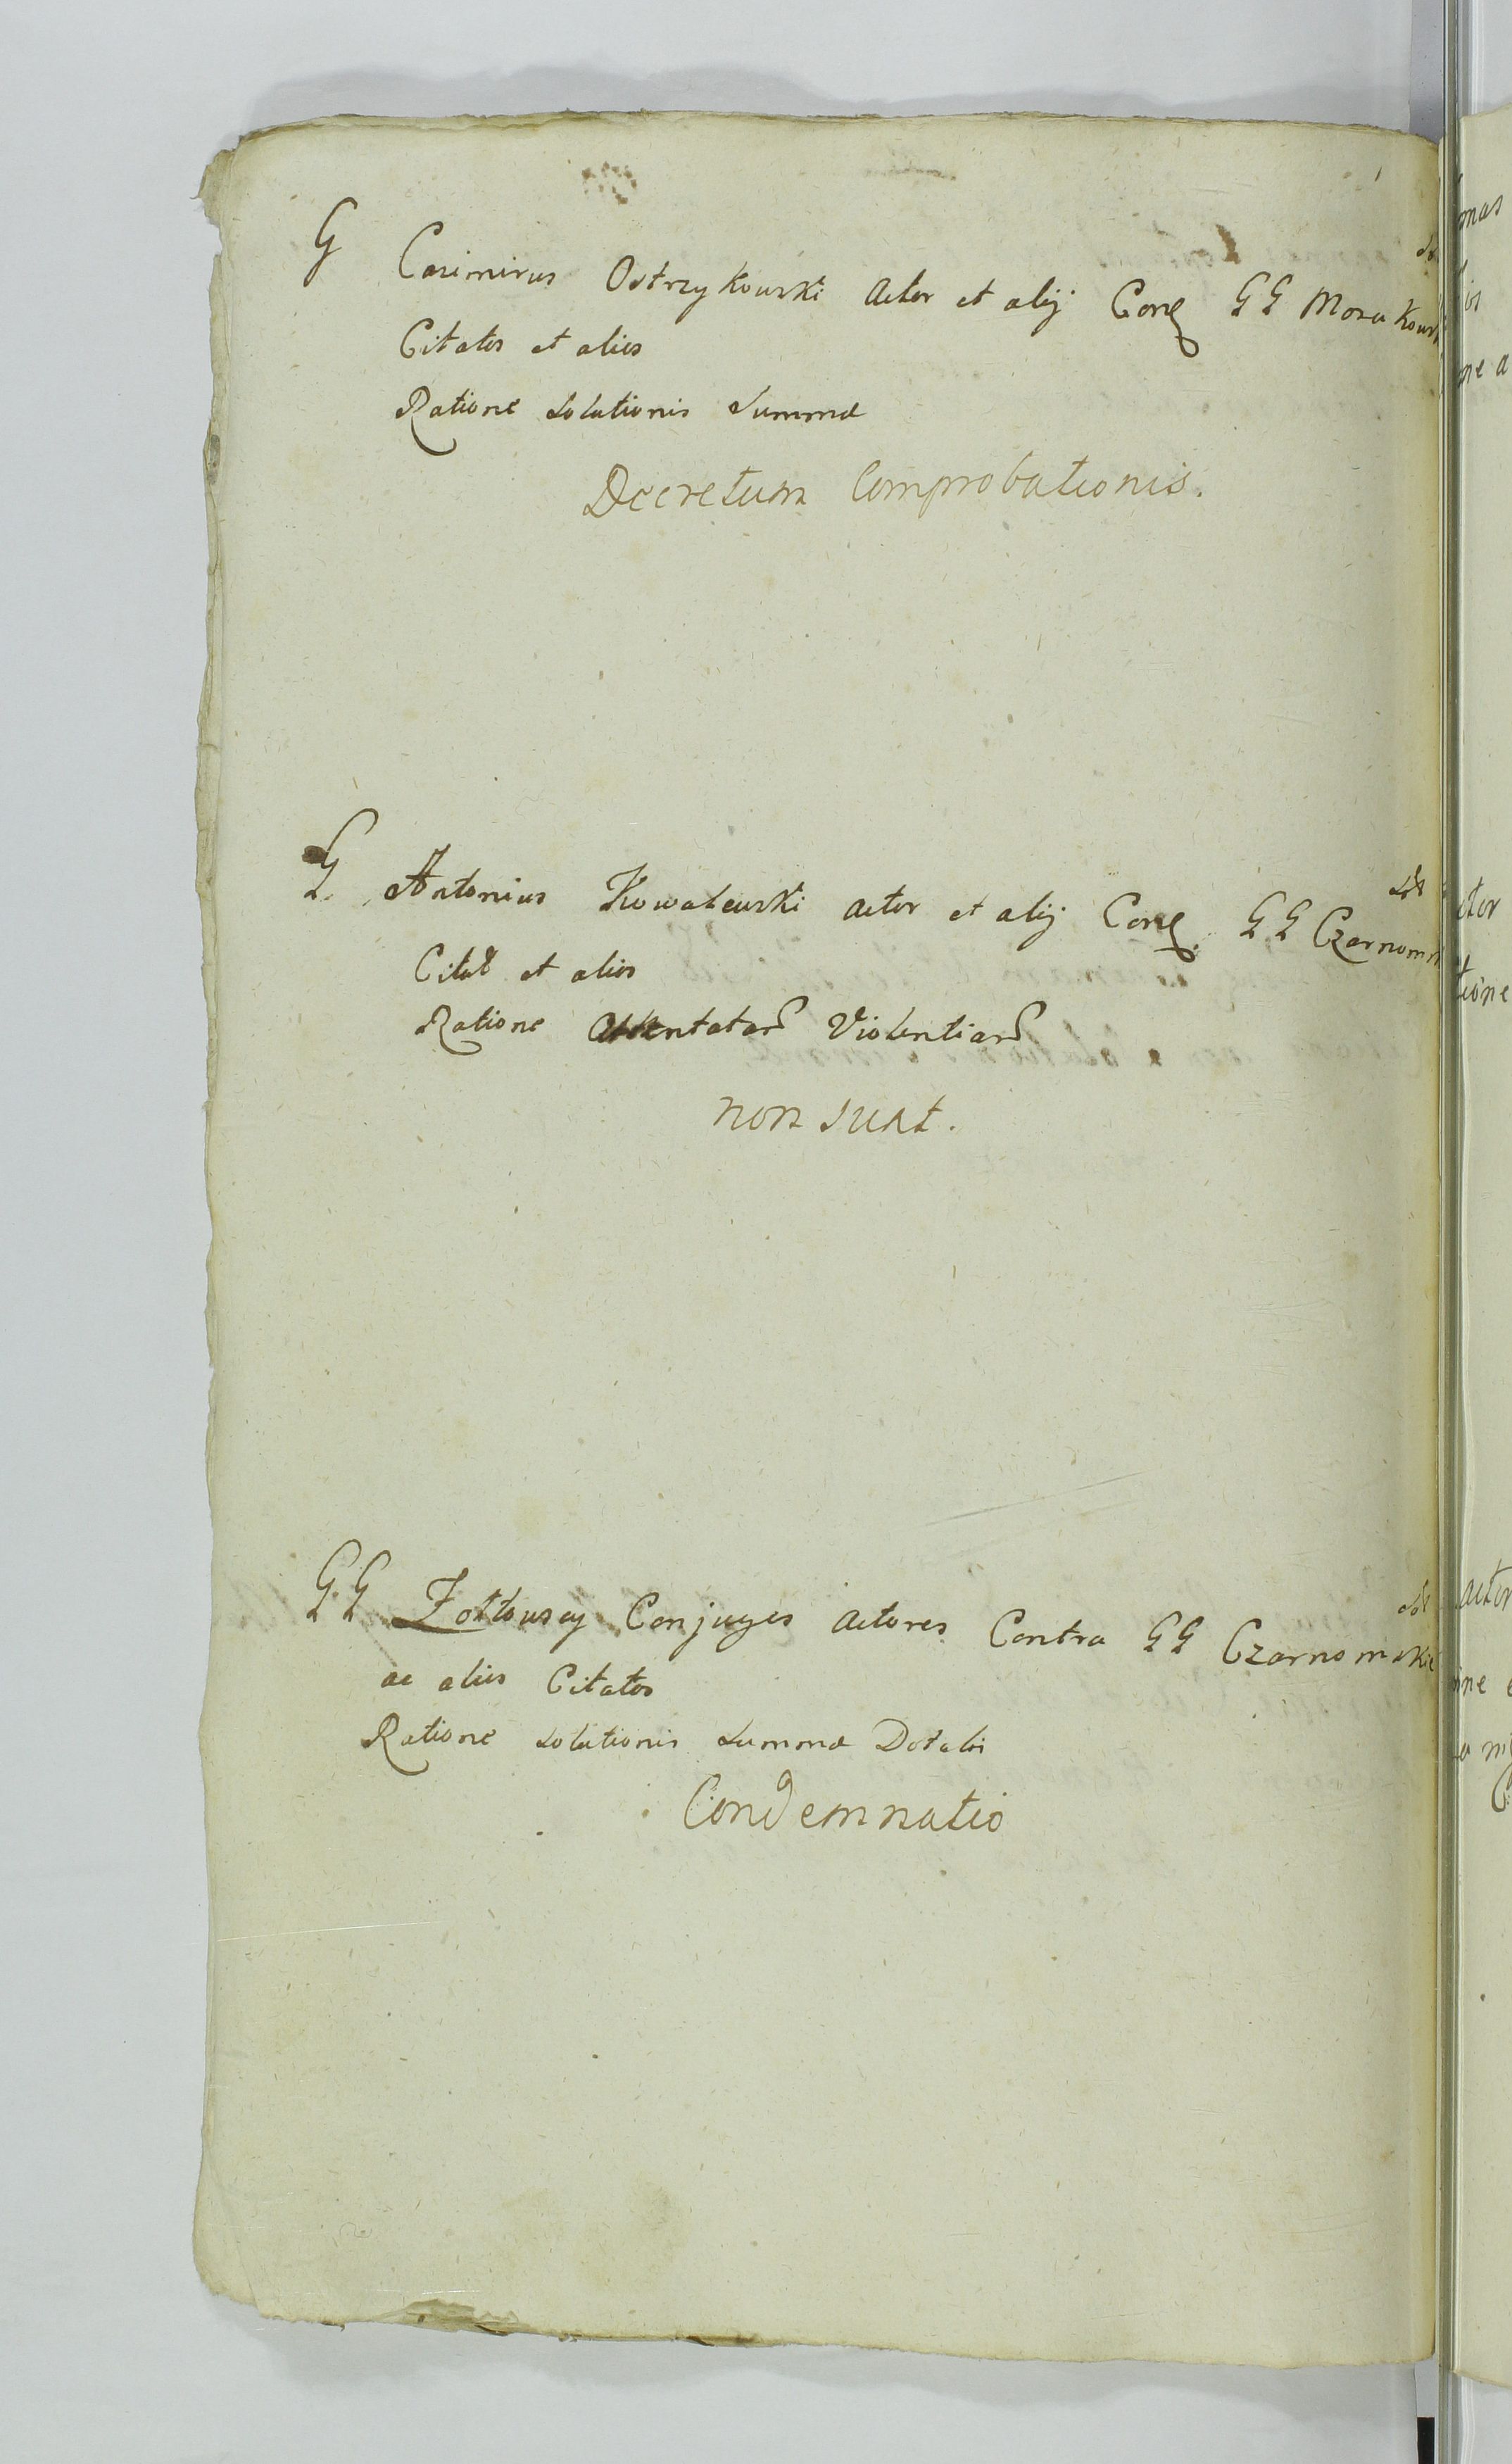 G Casimirus Ostrzykowski Actor et alij Conq GG Morakows
Citatos et alios
Ratione solutionis summæ
Decretum Comprobationis.
G Antonius Kowalewski actor et alij Conq GG Czarnoms
Citat et alios
Ratione attentatar Violentiar
non sunt.
GG Zołtowscy Conjuges actores Contra GG Czarnomskie
ac alios Citatos
Ratione solutionis summæ Dotalis
Condemnatio